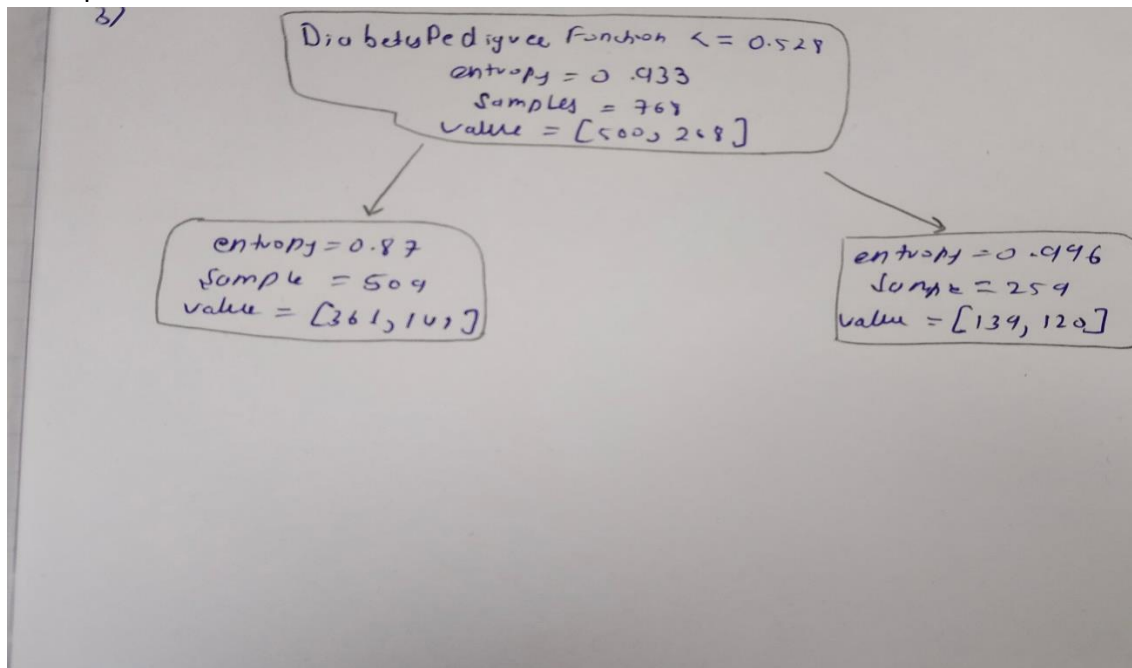 b)
DiabetesPedigree Function <= 0.528
entropy = 0.933
Samples = 768
value = [500, 268]
entropy = 0.87
Sample = 509
value = [361, 
entropy = 0.996
Sample = 259
value = [139, 120]